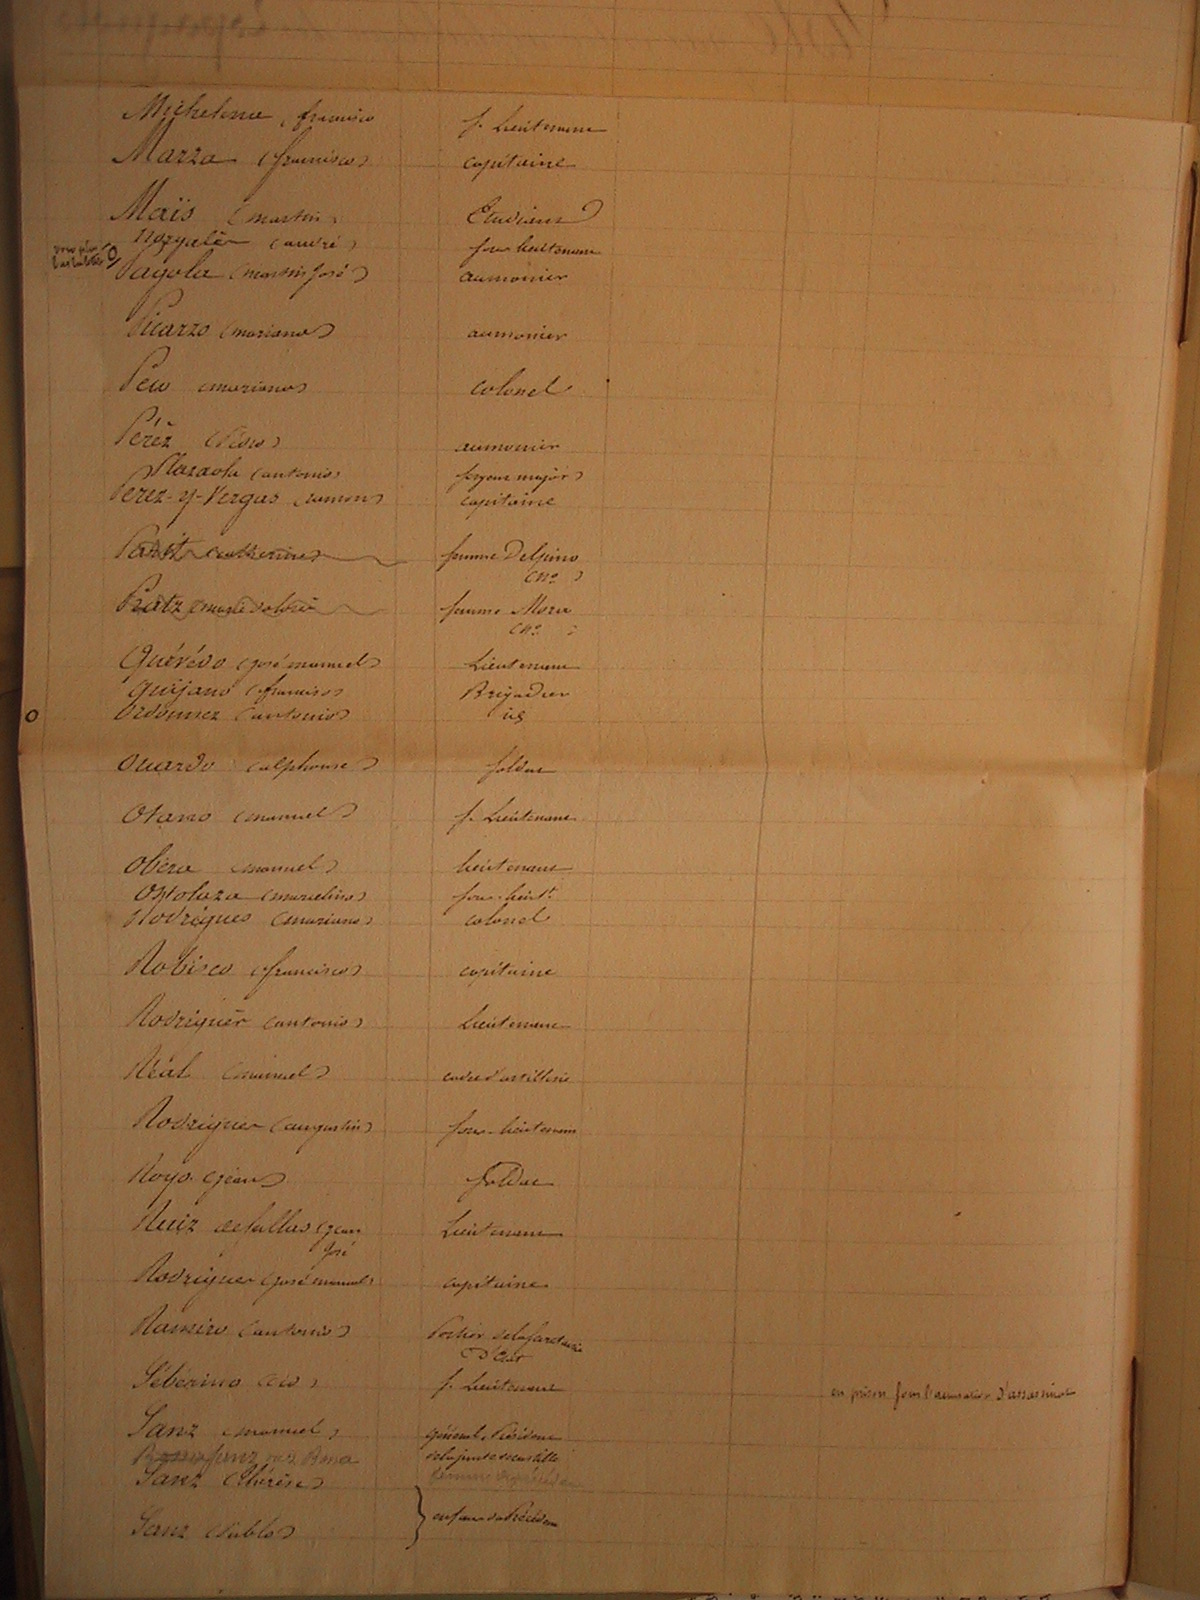 Michelena (francisco f. Lieutenant
Marza (francisco) capitaine
Maïs (martin) Etudiant
(andré) sous lieutenant
Pagola (martin José) aumonier
Picarzo (mariano) aumonier
Peco (mariano) colonel
Pérèz aumonier
Plazaola (antonio) major)
Pérez-y-Vergas (ramon) capitaine
(catherine) femme Delpino
(Me )
Pratz (marie femme Mora
(Me )
Quérédo (josé manuel) Lieutenant
Quijano (francisco) Brigadier
Ordonnez (antonio) id
Ouardo (alphonse) soldat
Otano (manuel) f. Lieutenant
Obéra (manuel) lieutenant
Ostolaza (marcelino) sous-lieutt
Rodrigues (mariano) colonel
Robisco (francisco) capitaine
Rodriguèr (antonio) Lieutenant
Réal (manuel) cadet d'artillerie
Rodriguer (augustin) sous-lieutenant
Royo (jean) soldat
Ruiz (jean Lieutenant
José
Rodriguer (josé manuel) capitaine
Ramiro (antonio) Portier de la secretairie
d'Etat
Sébérino f. Lieutenant en prison sous l'accusation d'assassinat
Sanz (manuel) général, Président
de la junte de castille
Sanz (thérèse)
Sanz (Pablo) enfans du Précédent